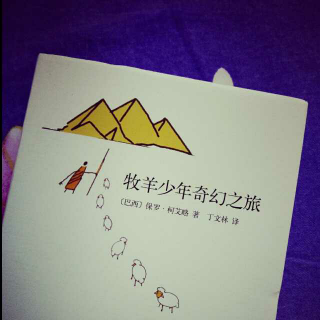 牧羊少年奇幻之旅
〔巴西〕保罗·柯艾略 著 丁文林 译